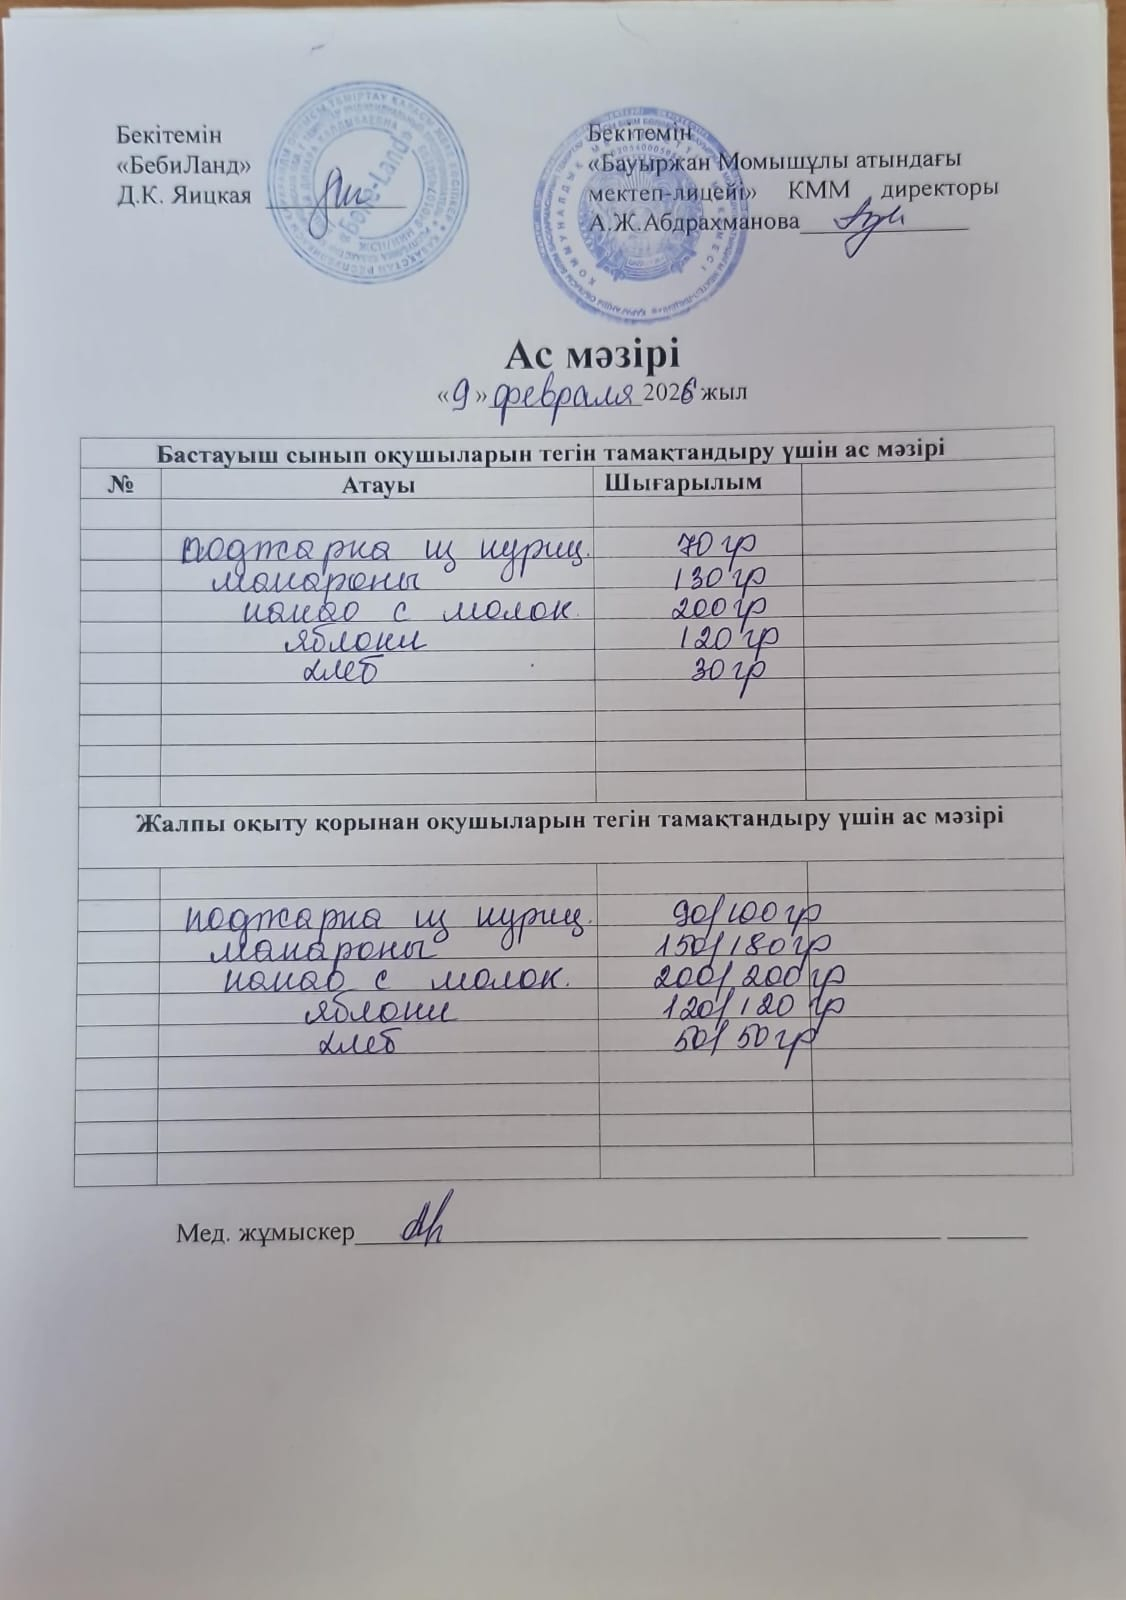 Бекітемін
«БебиЛанд»
Д.К. Яицкая
Бекітемін
«Бауыржан Момышұлы атындағы
мектеп-лицейі» КММ директоры
А.Ж.Абдрахманова
Ас мәзірі
«9» февраля 2026 жыл
Бастауыш сынып оқушыларын тегін тамақтандыру үшін ас мәзірі
№ Атауы Шығарылым
поджарка из куриц. 70 гр
макароны 130 гр
какао с молок. 200 гр
яблоки 120 гр
хлеб 30 гр
Жалпы оқыту қорынан оқушыларын тегін тамақтандыру үшін ас мәзірі
поджарка из куриц. 90/100 гр
макароны 150/180 гр
какао с молок. 200/200 гр
яблоки 120/120 гр
хлеб 50/50 гр
Мед. жұмыскер